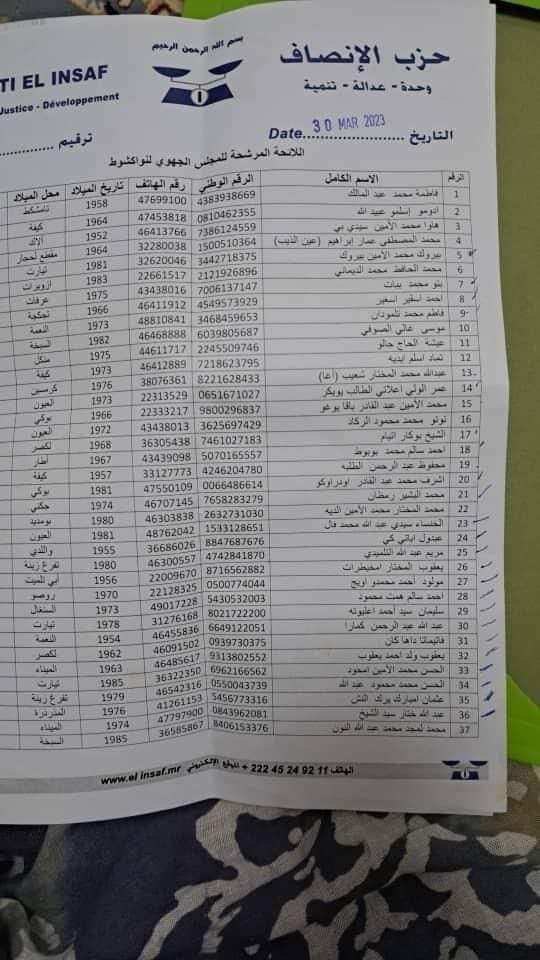 حزب الإنصاف
وحدة - عدالة - تنمية
بسم الله الرحمن الرحيم
TI EL INSAF
Justice - Développement
التاريخ Date 30 MAR 2023
ترقيم
اللائحة المرشحة للمجلس الجهوي لنواكشوط
الرقم الاسم الكامل الرقم الوطني رقم الهاتف تاريخ الميلاد محل الميلاد
1 فاطمة محمد عبد المالك 4383938669 47699100 1958 تامشكط
2 ادومو إسلمو عبيد الله 0810462355 47453818 1964 كيفة
3 هاوا محمد الأمين سيدي بي 7386124559 46413766 1952 ألاك
4 محمد المصطفى عمار إبراهيم (عين الذيب) 1500510364 32280038 1964 مقطع لحجار
5 بيروك محمد الأمين بيروك 3442718375 32620046 1981 تيارت
6 محمد الحافظ محمد الديماني 2121926896 22661517 1983 ازويرات
7 بنو محمد ببات 7006137147 43438016 1975 عرفات
8 احمد اسغير اسغير 4549573929 46411912 1966 تجكجة
9 فاطم محمد تلمودان 3468459653 48810841 1973 النعمة
10 موسى غالي الصوفي 6039805687 46468888 1982 السبخة
11 عيشة الحاج جالو 2245509746 44611717 1975 منكل
12 تماد اسلم ابديه 7218623795 46412889 1973 كيفة
13 عبدالله محمد المختار شعيب (اغا) 8221628433 38076361 1976 كرمسين
14 عمر الولي اعلاتي الطالب بوبكر 0651671027 22313529 1973 العيون
15 محمد الأمين عبد القادر باقا يوغو 9800296837 22333217 1966 بوكي
16 توتو محمد محمود الركاد 3625697429 43438013 1972 العيون
17 الشيخ بوكار انيام 7461027183 36305438 1968 لكصر
18 احمد سالم محمد بوبوط 5070165557 43439098 1967 أطار
19 محفوظ عبد الرحمن الطلبه 4246204780 33127773 1957 كيفة
20 اشرف محمد عبد القادر اودراوكو 0066486614 47550109 1981 بوكي
21 محمد البشير رمظان 7658283279 46707145 1974 جكني
22 محمد المختار محمد الأمين الديه 2632731030 46303838 1980 بومديد
23 الخنساء سيدي عبد الله محمد فال 1533128651 48762042 1981 العيون
24 عبدول اباتي كي 8847687676 36686026 1955 والذي
25 مريم عبد الله التلميدي 4742841870 46300557 1980 تفرغ زينة
26 يعقوب المختار امخيطرات 8716562882 22009670 1956 أبي تلميت
27 مولود أحمد محمدو اويج 0500774044 22128325 1970 روصو
28 أحمد سالم همت محمود 5430532003 49017228 1973 السنغال
29 سليمان سيد أحمد اعليوته 8021722200 31276168 1978 تيارت
30 عبد الله عبد الرحمن كمارا 6649122051 46455836 1954 النعمة
31 فاتيماتا داها كان 0939730375 46091502 1962 لكصر
32 يعقوب ولد احمد يعقوب 9313802552 46485617 1963 الميناء
33 الحسن محمد الأمين امحود 6962166562 36322350 1985 تيارت
34 الحسن محمد محمود عبد الله 0550043739 46542316 1979 تفرغ زينة
35 عثمان امبارك يرك النش 5456773316 41261153 1976 المذرذرة
36 عبد الله ختار سيد الشيخ 0843962081 47797900 1974 الميناء
37 محمد لمجد محمد عبد الله النون 8406153376 36585867 1985 السبخة
الهاتف 11 92 24 45 222 + للموقع الإلكتروني www.el insaf.mr